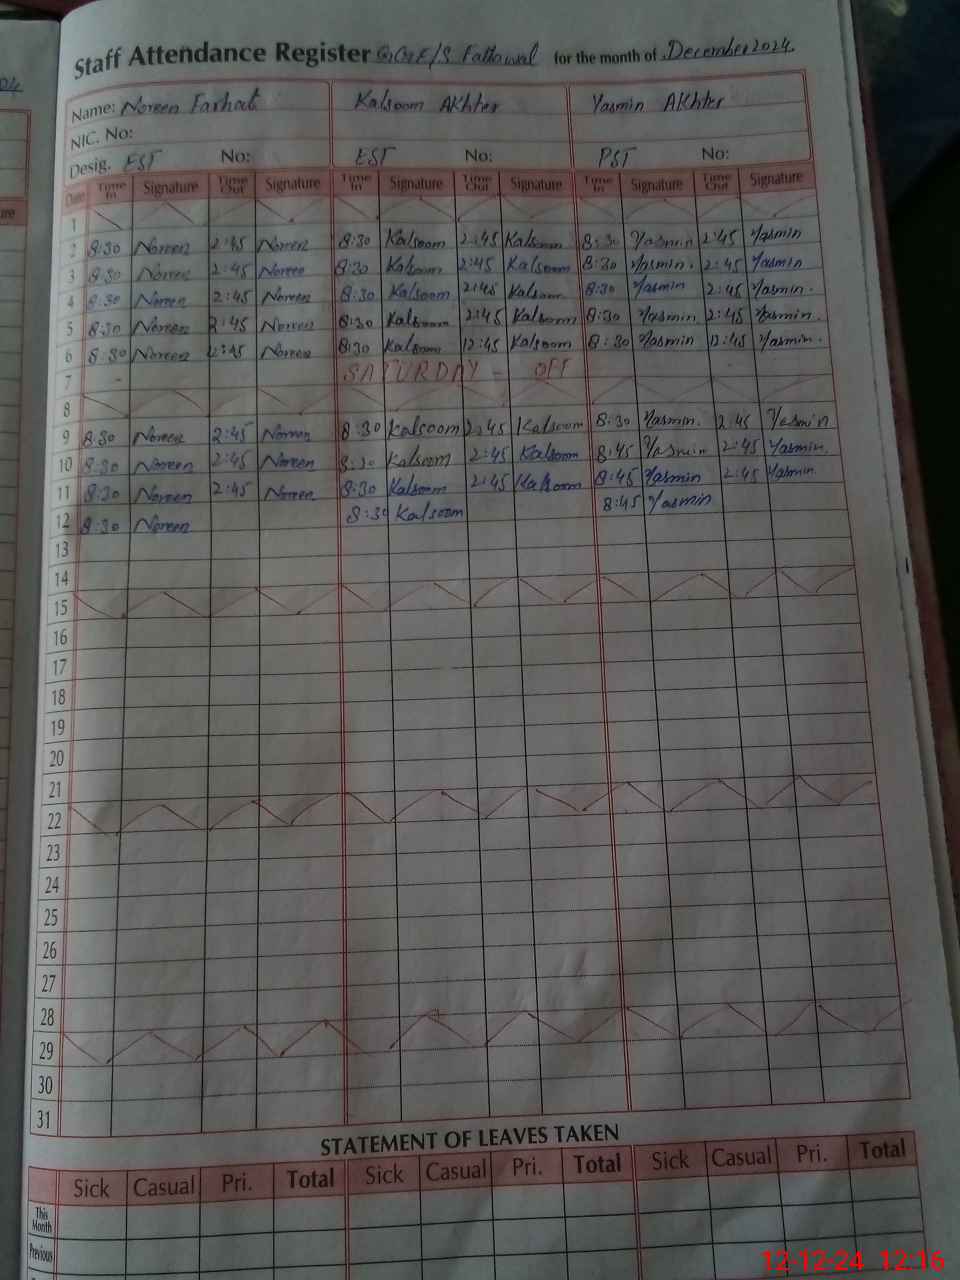 Staff Attendance Register G.G.E/S Fattowal for the month of December 2024.
Name: Noreen Farhat Kalsoom Akhter Yasmin Akhter
NIC. No:
Desig. EST No: EST No: PST No:
Date Time In Signature Time Out Signature Time In Signature Time Out Signature Time In Signature Time Out Signature
1
2 8:30 Noreen 2:45 Noreen 8:30 Kalsoom 2:45 Kalsoom 8:30 Yasmin 2:45 Yasmin
3 8:30 Noreen 2:45 Noreen 8:30 Kalsoom 2:45 Kalsoom 8:30 Yasmin. 2:45 Yasmin
4 8:30 Noreen 2:45 Noreen 8:30 Kalsoom 2:45 Kalsoom 8:30 Yasmin 2:45 Yasmin.
5 8:30 Noreen 2:45 Noreen 8:30 Kalsoom 2:45 Kalsoom 8:30 Yasmin 2:45 Yasmin.
6 8:30 Noreen 12:45 Noreen 8:30 Kalsoom 12:45 Kalsoom 8:30 Yasmin 12:45 Yasmin.
7 - SATURDAY - OFF
8
9 8:30 Noreen 2:45 Noreen 8:30 Kalsoom 2:45 Kalsoom 8:30 Yasmin. 2:45 Yasmin
10 8:30 Noreen 2:45 Noreen 8:30 Kalsoom 2:45 Kalsoom 8:45 Yasmin 2:45 Yasmin.
11 8:30 Noreen 2:45 Noreen 8:30 Kalsoom 2:45 Kalsoom 8:45 Yasmin 2:45 Yasmin.
12 8:30 Noreen 8:30 Kalsoom 8:45 Yasmin
13
14
15
16
17
18
19
20
21
22
23
24
25
26
27
28
29
30
31
STATEMENT OF LEAVES TAKEN
Sick Casual Pri. Total Sick Casual Pri. Total Sick Casual Pri. Total
This Month
Previous
12-12-24 12:16